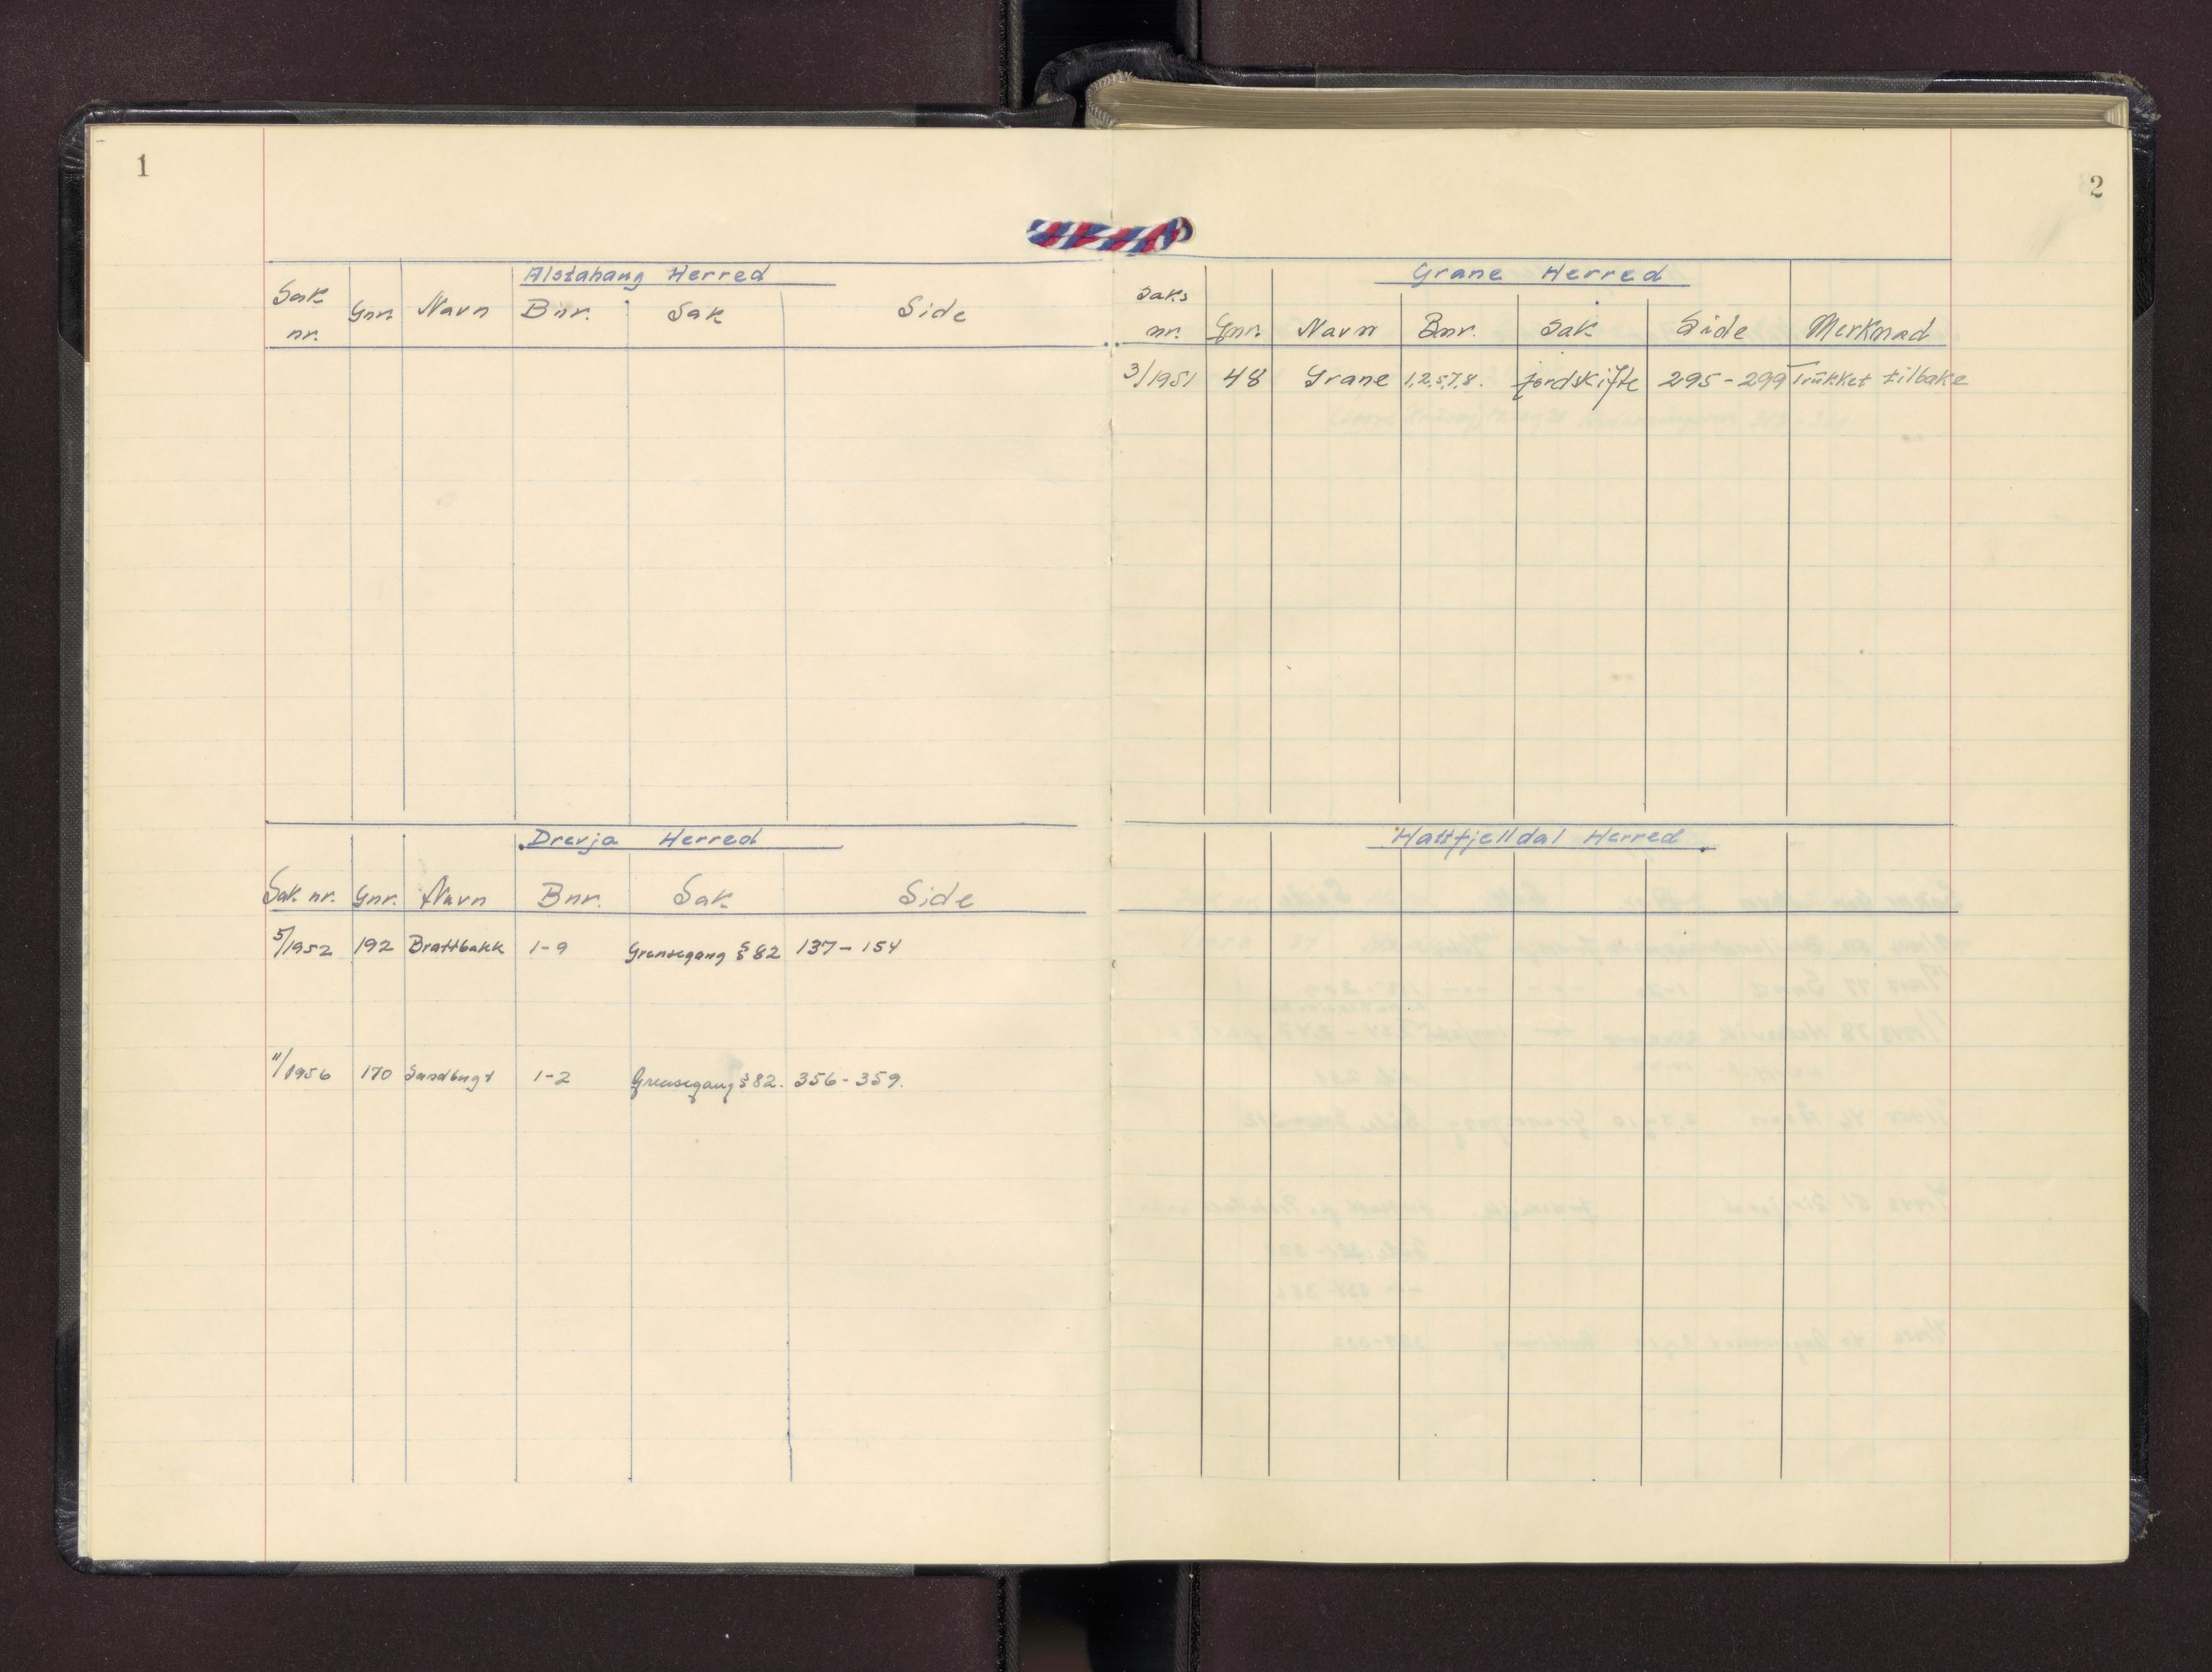 1
Alstahaug Herred
Sak nr. Gnr. Navn Bnr. Sak Side
Drevja Herred
Sak. nr. Gnr. Navn Bnr. Sak Side
5/1952 192 Brattbakk 1-9 Grensegang § 82 137-154
11/1956 170 Sandbugt 1-2 Grensegang § 82. 356-359.
2
Grane Herred
Saks nr. Gnr. Navn Bnr. Sak Side Merknad
3/1951 48 Grane 1,2,5,7,8. jordskifte 295-299 Trukket tilbake
Hattfjelldal Herred